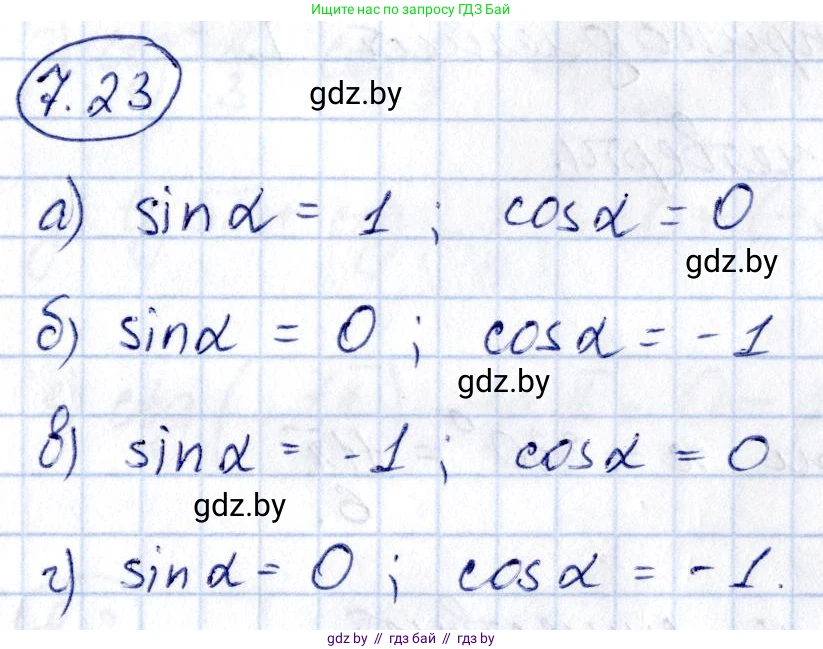 Ищите нас по запросу ГДЗ Бай
7.23
gdz.by
а) sinα = 1 ; cosα = 0
gdz.by
б) sinα = 0 ; cosα = -1
gdz.by
в) sinα = -1 ; cosα = 0
gdz.by
г) sinα = 0 ; cosα = -1.
gdz.by // гдз бай // гдз by